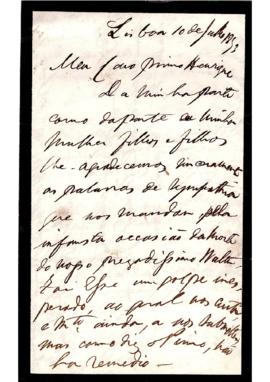 Lisboa 10 de Julho
Meu Caro Primo Henrique
Da minha parte
como da parte de minha
mulher filhos e filhas
lhe agradecemos sinceramente
as palavras de sympathia
que nos mandam pela
infausta occasião da morte
do nosso presadissimo
Foi esse um golpe ines
perado ao qual nos custa
ainda, a nos
mas como diz o Primo, não
ha remedio —